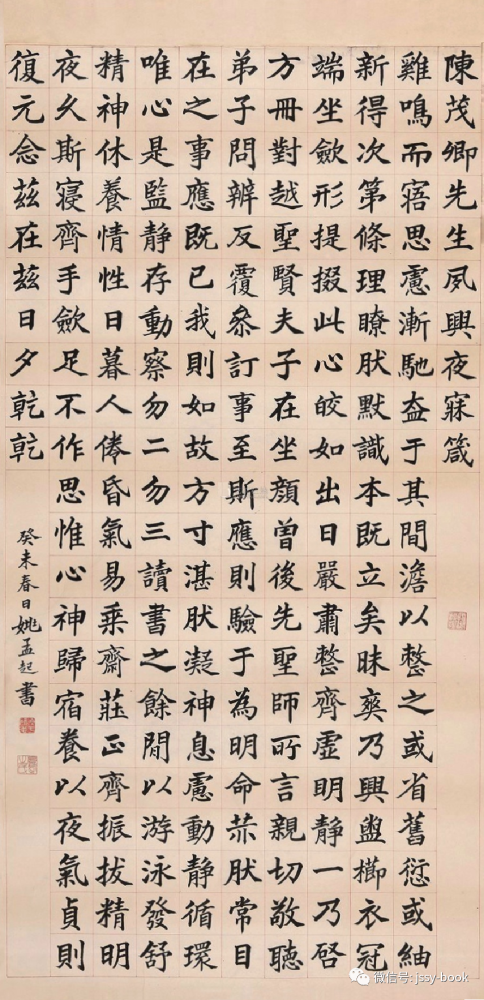 陳茂卿先生夙興夜寐箴
雞鳴而寤思慮漸馳盍于其間澹以整之或省舊愆或紬
新得次第條理瞭肰默識本既立矣昧爽乃興盥櫛衣冠
端坐歛形提掇此心皎如出日嚴肅整齊虛明靜一乃啓
方冊對越聖賢夫子在坐顏曾後先聖師所言親切敬聽
弟子問辨反覆叅訂事至斯應則驗于為明命赤肰常目
在之事應既已我則如故方寸湛肰凝神息慮動静循環
唯心是監静存動察勿二勿三讀書之餘閒以游泳發舒
精神休養情性日暮人倦昏氣易乘齋莊正齊振拔精明
夜久斯寢齊手歛足不作思惟心神歸宿養以夜氣貞則
復元念茲在茲日夕乾乾
癸未春日姚孟起書
微信号: jssy-book